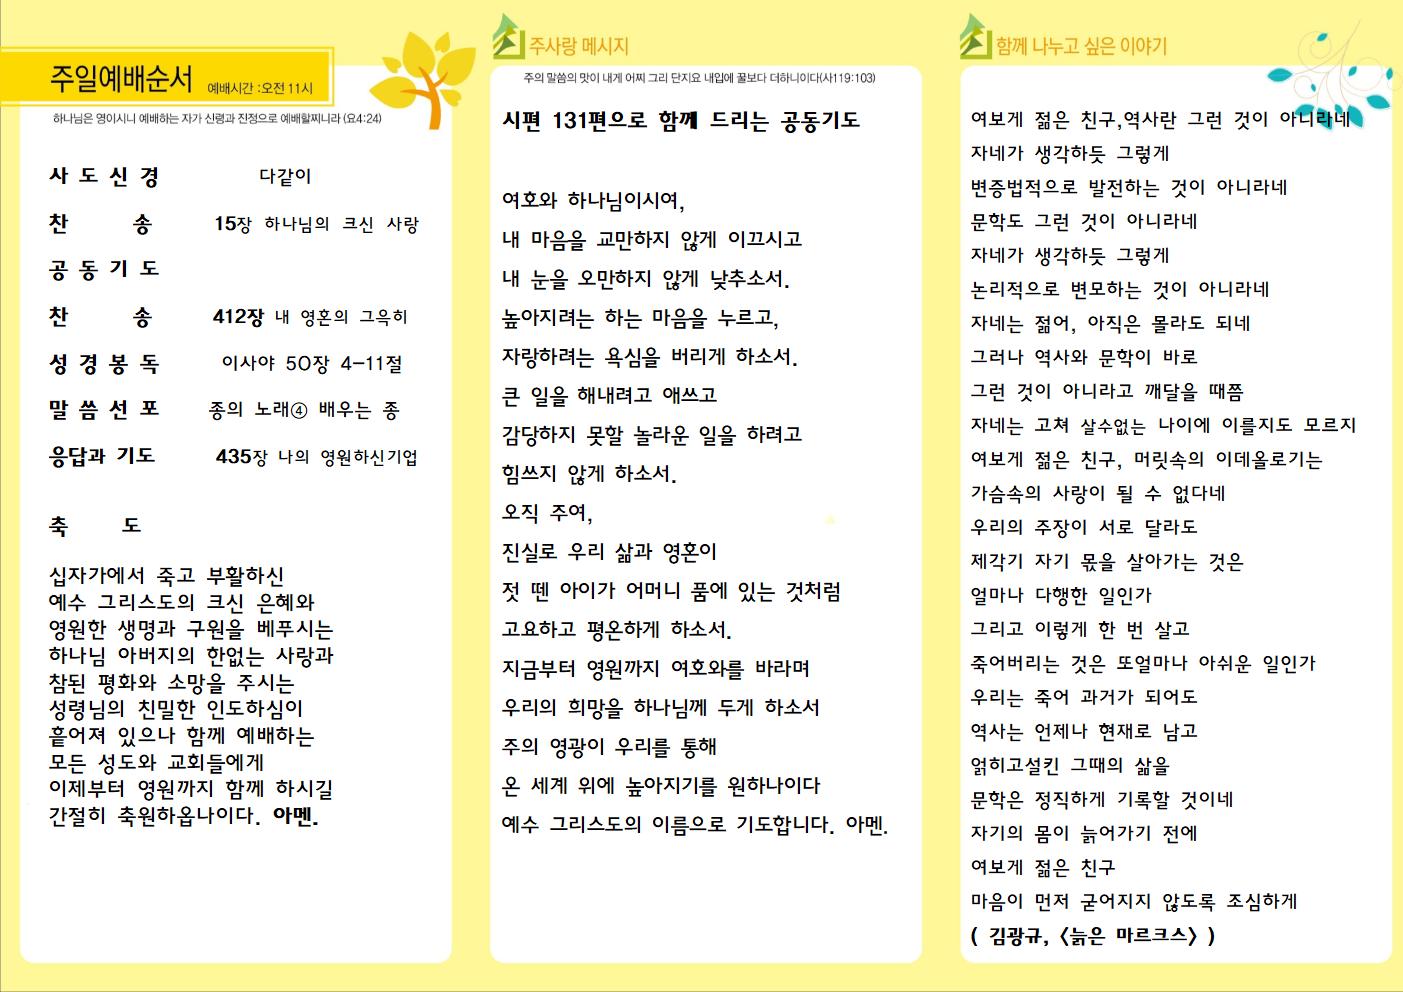 주일예배순서 예배시간 :오전 11시
하나님은 영이시니 예배하는 자가 신령과 진정으로 예배할찌니라 (요4:24)
사 도 신 경 다같이
찬 송 15장 하나님의 크신 사랑
공 동 기 도
찬 송 412장 내 영혼의 그윽히
성 경 봉 독 이사야 50장 4-11절
말 씀 선 포 종의 노래④ 배우는 종
응답과 기도 435장 나의 영원하신기업
축 도
십자가에서 죽고 부활하신
예수 그리스도의 크신 은혜와
영원한 생명과 구원을 베푸시는
하나님 아버지의 한없는 사랑과
참된 평화와 소망을 주시는
성령님의 친밀한 인도하심이
흩어져 있으나 함께 예배하는
모든 성도와 교회들에게
이제부터 영원까지 함께 하시길
간절히 축원하옵나이다. 아멘.
주사랑 메시지
주의 말씀의 맛이 내게 어찌 그리 단지요 내입에 꿀보다 더하니이다(사119:103)
시편 131편으로 함께 드리는 공동기도
여호와 하나님이시여,
내 마음을 교만하지 않게 이끄시고
내 눈을 오만하지 않게 낮추소서.
높아지려는 하는 마음을 누르고,
자랑하려는 욕심을 버리게 하소서.
큰 일을 해내려고 애쓰고
감당하지 못할 놀라운 일을 하려고
힘쓰지 않게 하소서.
오직 주여,
진실로 우리 삶과 영혼이
젓 뗀 아이가 어머니 품에 있는 것처럼
고요하고 평온하게 하소서.
지금부터 영원까지 여호와를 바라며
우리의 희망을 하나님께 두게 하소서
주의 영광이 우리를 통해
온 세계 위에 높아지기를 원하나이다
예수 그리스도의 이름으로 기도합니다. 아멘.
함께 나누고 싶은 이야기
여보게 젊은 친구,역사란 그런 것이 아니라네
자네가 생각하듯 그렇게
변증법적으로 발전하는 것이 아니라네
문학도 그런 것이 아니라네
자네가 생각하듯 그렇게
논리적으로 변모하는 것이 아니라네
자네는 젊어, 아직은 몰라도 되네
그러나 역사와 문학이 바로
그런 것이 아니라고 깨달을 때쯤
자네는 고쳐 살수없는 나이에 이를지도 모르지
여보게 젊은 친구, 머릿속의 이데올로기는
가슴속의 사랑이 될 수 없다네
우리의 주장이 서로 달라도
제각기 자기 몫을 살아가는 것은
얼마나 다행한 일인가
그리고 이렇게 한 번 살고
죽어버리는 것은 또얼마나 아쉬운 일인가
우리는 죽어 과거가 되어도
역사는 언제나 현재로 남고
얽히고설킨 그때의 삶을
문학은 정직하게 기록할 것이네
자기의 몸이 늙어가기 전에
여보게 젊은 친구
마음이 먼저 굳어지지 않도록 조심하게
( 김광규, <늙은 마르크스> )